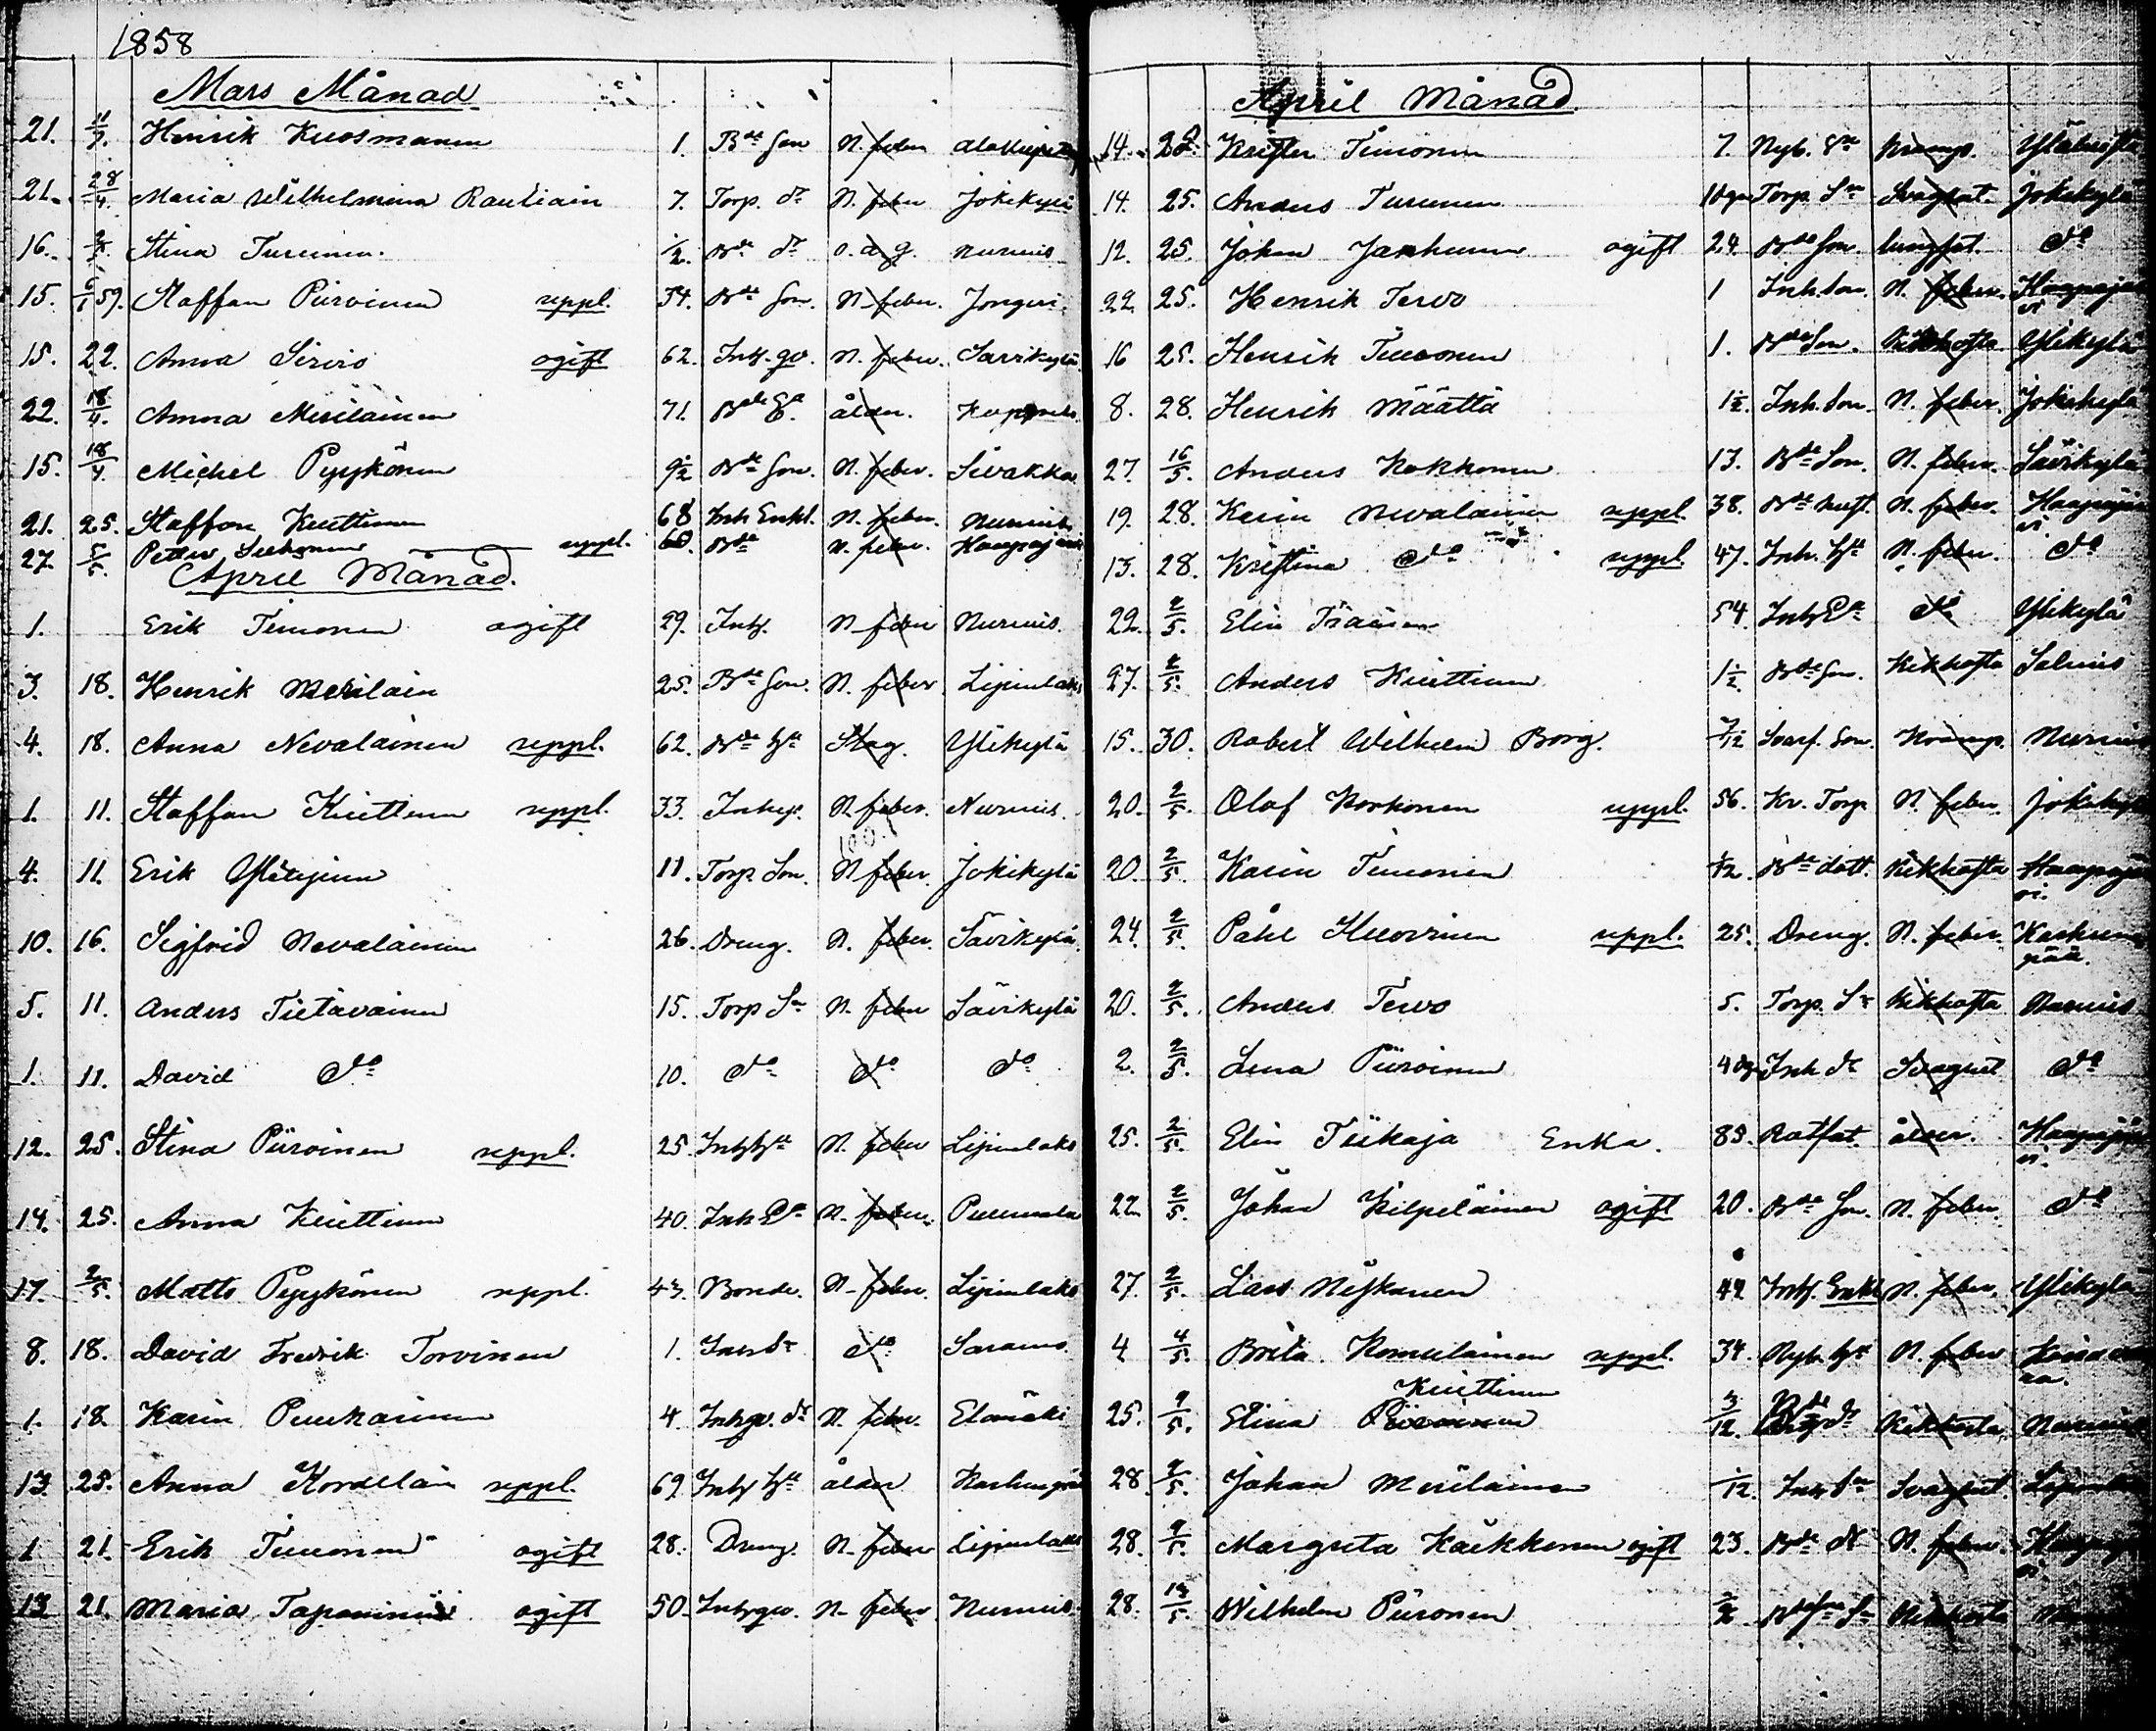 1858
Mars Månad
21. 11/7. Henrik Kuosmanen 1. Bde Son N. feber
21. 28/4. Maria Wilhelmina Rautiain 7. Torp. dr N. feber Jokikylä
16. Stina Turunen. 1/2. Bde dr o. d. g. Nurmis
15. 6/1 59. Staffan Piiroinen uppl. 54. Bde Son. N. feber. Jongeri
15. 22. Anna Sirviö ogift 62. Inh. qv. N. feber. Savikylä
22. 18/4. Anna Meriläinen 71. Bde Ea ålder.
15. 18/4 Michel Pyykönen 9 1/2 Bde Son. N. feber. Sivakka
21. 25. Staffan Kuittinen 68 Inh Enkl. N. feber. Nurmis
27. 5/5. Petter uppl. 60. Bde N. feber. Haapajärvi
April Månad.
1. Erik Timonen ogift 29. Inh. N. feber Nurmis.
3. 18. Henrik Meriläin 25. Bde Son. N. feber Lipinlaks
4. 18. Anna Nevalainen uppl. 62. Bde hu Slag. Ylikylä
1. 11. Staffan Kuittinen uppl. 33. Inhys. N. feber. Nurmis.
4. 11. Erik 11. Torp. Son. N. feber. Jokikylä
10. 16. Sigfrid Nevalainen 26. Dreng. N. feber. Savikylä
5. 11. Anders Tietäväinen 15. Torp Sn N. feber Savikylä
1. 11. David do 10. do do do
12. 25. Stina Piiroinen uppl. 25. Inh hu N. feber Lipinlaks
14. 25. Anna Kuittinen 40. Inh Ea N. feber. Puumala
17. 2/5. Matts Pyykönen uppl. 43. Bonde. N. feber. Lipinlaks
8. 18. David Fredrik Torvinen 1. Inh Sn do Saramo
1. 18. Karin Puukarinen 4. Inhqv. dr N. feber. Elomäki
13. 25. Anna Kordelän uppl. 69 Inh hu ålder
1. 21. Erik Timonen ogift 28. Dreng. N. feber Lipinlaks
13 21. Maria Tapaninen ogift 50. Inhqv. N. feber Nurmis
April Månad.
14. 28. Krister Timonen 7. Nyb. Sn kramp.
14. 25. Anders Turunen Torp. Sn Svaghet. Jokikylä
12. 25. Johan Janhunen ogift 24. Bde Son. lungsot. do
22. 25. Henrik Tervo 1 Inh. Son. N. feber. Haapajärvi
16 25. Henrik Timonen 1. Bde Son. Kikhosta Ylikylä
8. 28. Henrik Määttä 1 1/2. Inh. Son. N. feber. Jokikylä
27. 16/5. Anders Kokkonen 13. Bde Son. N. feber. Savikylä
19. 28. Karin Nevalainen uppl. 38. Bde hust. N. feber. Haapajärvi
13. 28. Kristina do uppl. 47. Inh. hu N. feber. do
22. 2/5. Elin 54. Inh Ea do Ylikylä
27. 2/5. Anders Kuittinen 1 1/2 Bde Son. Kikhosta Salmis
15. 30. Robert Wilhelm Borg. 7/12 Son. Kramp. Nurmis
20. 2/5. Olof Korhonen uppl. 56. Kr. Torp N. feber. Jokikylä
20. 2/5. Karin Timonen Bde dott. Kikhosta Haapajärvi.
24. 2/5. Påhl Huovinen uppl. 25. Dreng. N. feber. Karhunpää.
20. 2/5. Anders Tervo 5. Torp. Sn Kikhosta Nurmis
2. 2/5. Lena Piiroinen 4 dg Inh dr Svaghet do
25. 2/5. Elin Tiikaja Enka. 85. Ratfat. ålder. Haapajärvi.
22 2/5. Johan Kilpeläinen ogift 20. Bde Son. N. feber. do
27. 2/5. Lars Niskanen 42 Inh. Enkl N. feber. Ylikylä
4 4/5. Brita Romulainen uppl. 34. Nyb. hu N. feber
25. 9/5. Elina Kuittinen 3/12. Bde dr Kikhosta Nurmis
28 9/5. Johan Meriläinen 1/12. Inh Sn Svaghet
28. 9/5. Margreta Käkkönen ogift 23. Bde dr N. feber.
28. 13/5. Wilhelm Piironen Kikhosta